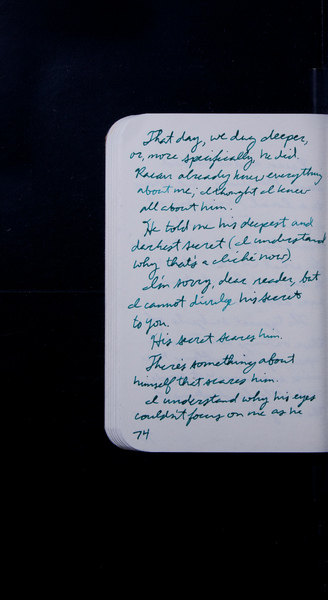 That day, we dug deeper,
or, more specifically, he did.
already knew everything
about me; I thought I knew
all about him.
He told me his deepest and
darkest secret (I understand
why that's a cliché now).
I'm sorry, dear reader, but
I cannot divulge his secrets
to you.
His secret scares him.
There's something about
himself that scares him.
I understand why his eyes
couldn't focus on me as he
74